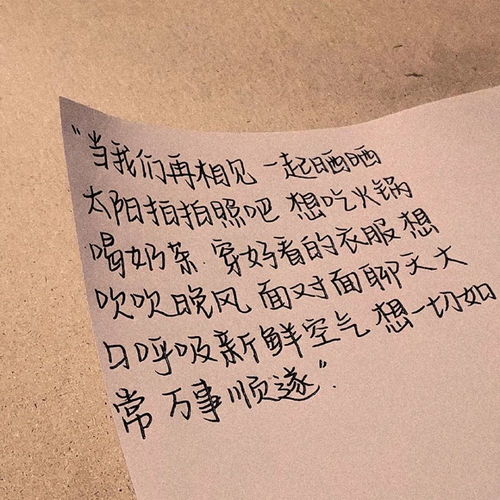 “当我们再相见 一起晒晒
太阳拍拍照吧 想吃火锅
喝奶茶.穿好看的衣服 想
吹吹晚风 面对面聊天大
口呼吸新鲜空气 想一切如
常 万事顺遂”.